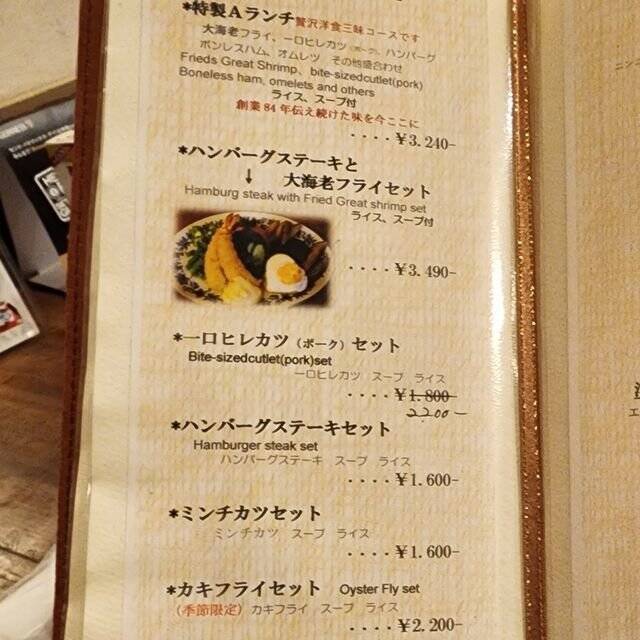 *特製Aランチ贅沢洋食三昧コースです
大海老フライ、一口ヒレカツ(ポーク)、ハンバーグ
ボンレスハム、オムレツ その他盛合わせ
Frieds Great Shrimp、bite-sizedcutlet(pork)
Boneless ham, omelets and others
ライス、スープ付
創業84年伝え続けた味を今ここに
････¥3.240-
*ハンバーグステーキと
↓ 大海老フライセット
Hamburg steak with Fried Great shrimp set
ライス、スープ付
････¥3.490-
*一口ヒレカツ(ポーク)セット
Bite-sizedcutlet(pork)set
一口ヒレカツ スープ ライス
････¥1.800-
2200-
*ハンバーグステーキセット
Hamburger steak set
ハンバーグステーキ スープ ライス
････¥1.600-
*ミンチカツセット
ミンチカツ スープ ライス
････¥1.600-
*カキフライセット Oyster Fly set
(季節限定) カキフライ スープ ライス
････¥2.200-